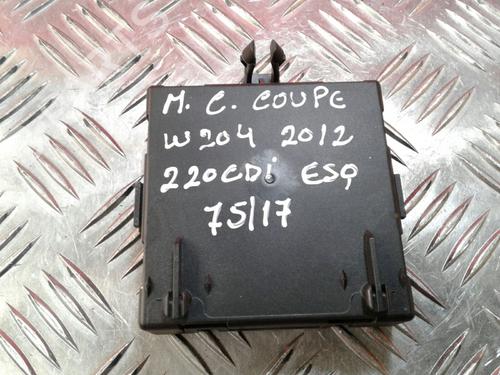 M. C. COUPE
W204 2012
220CDi ESQ
75/17